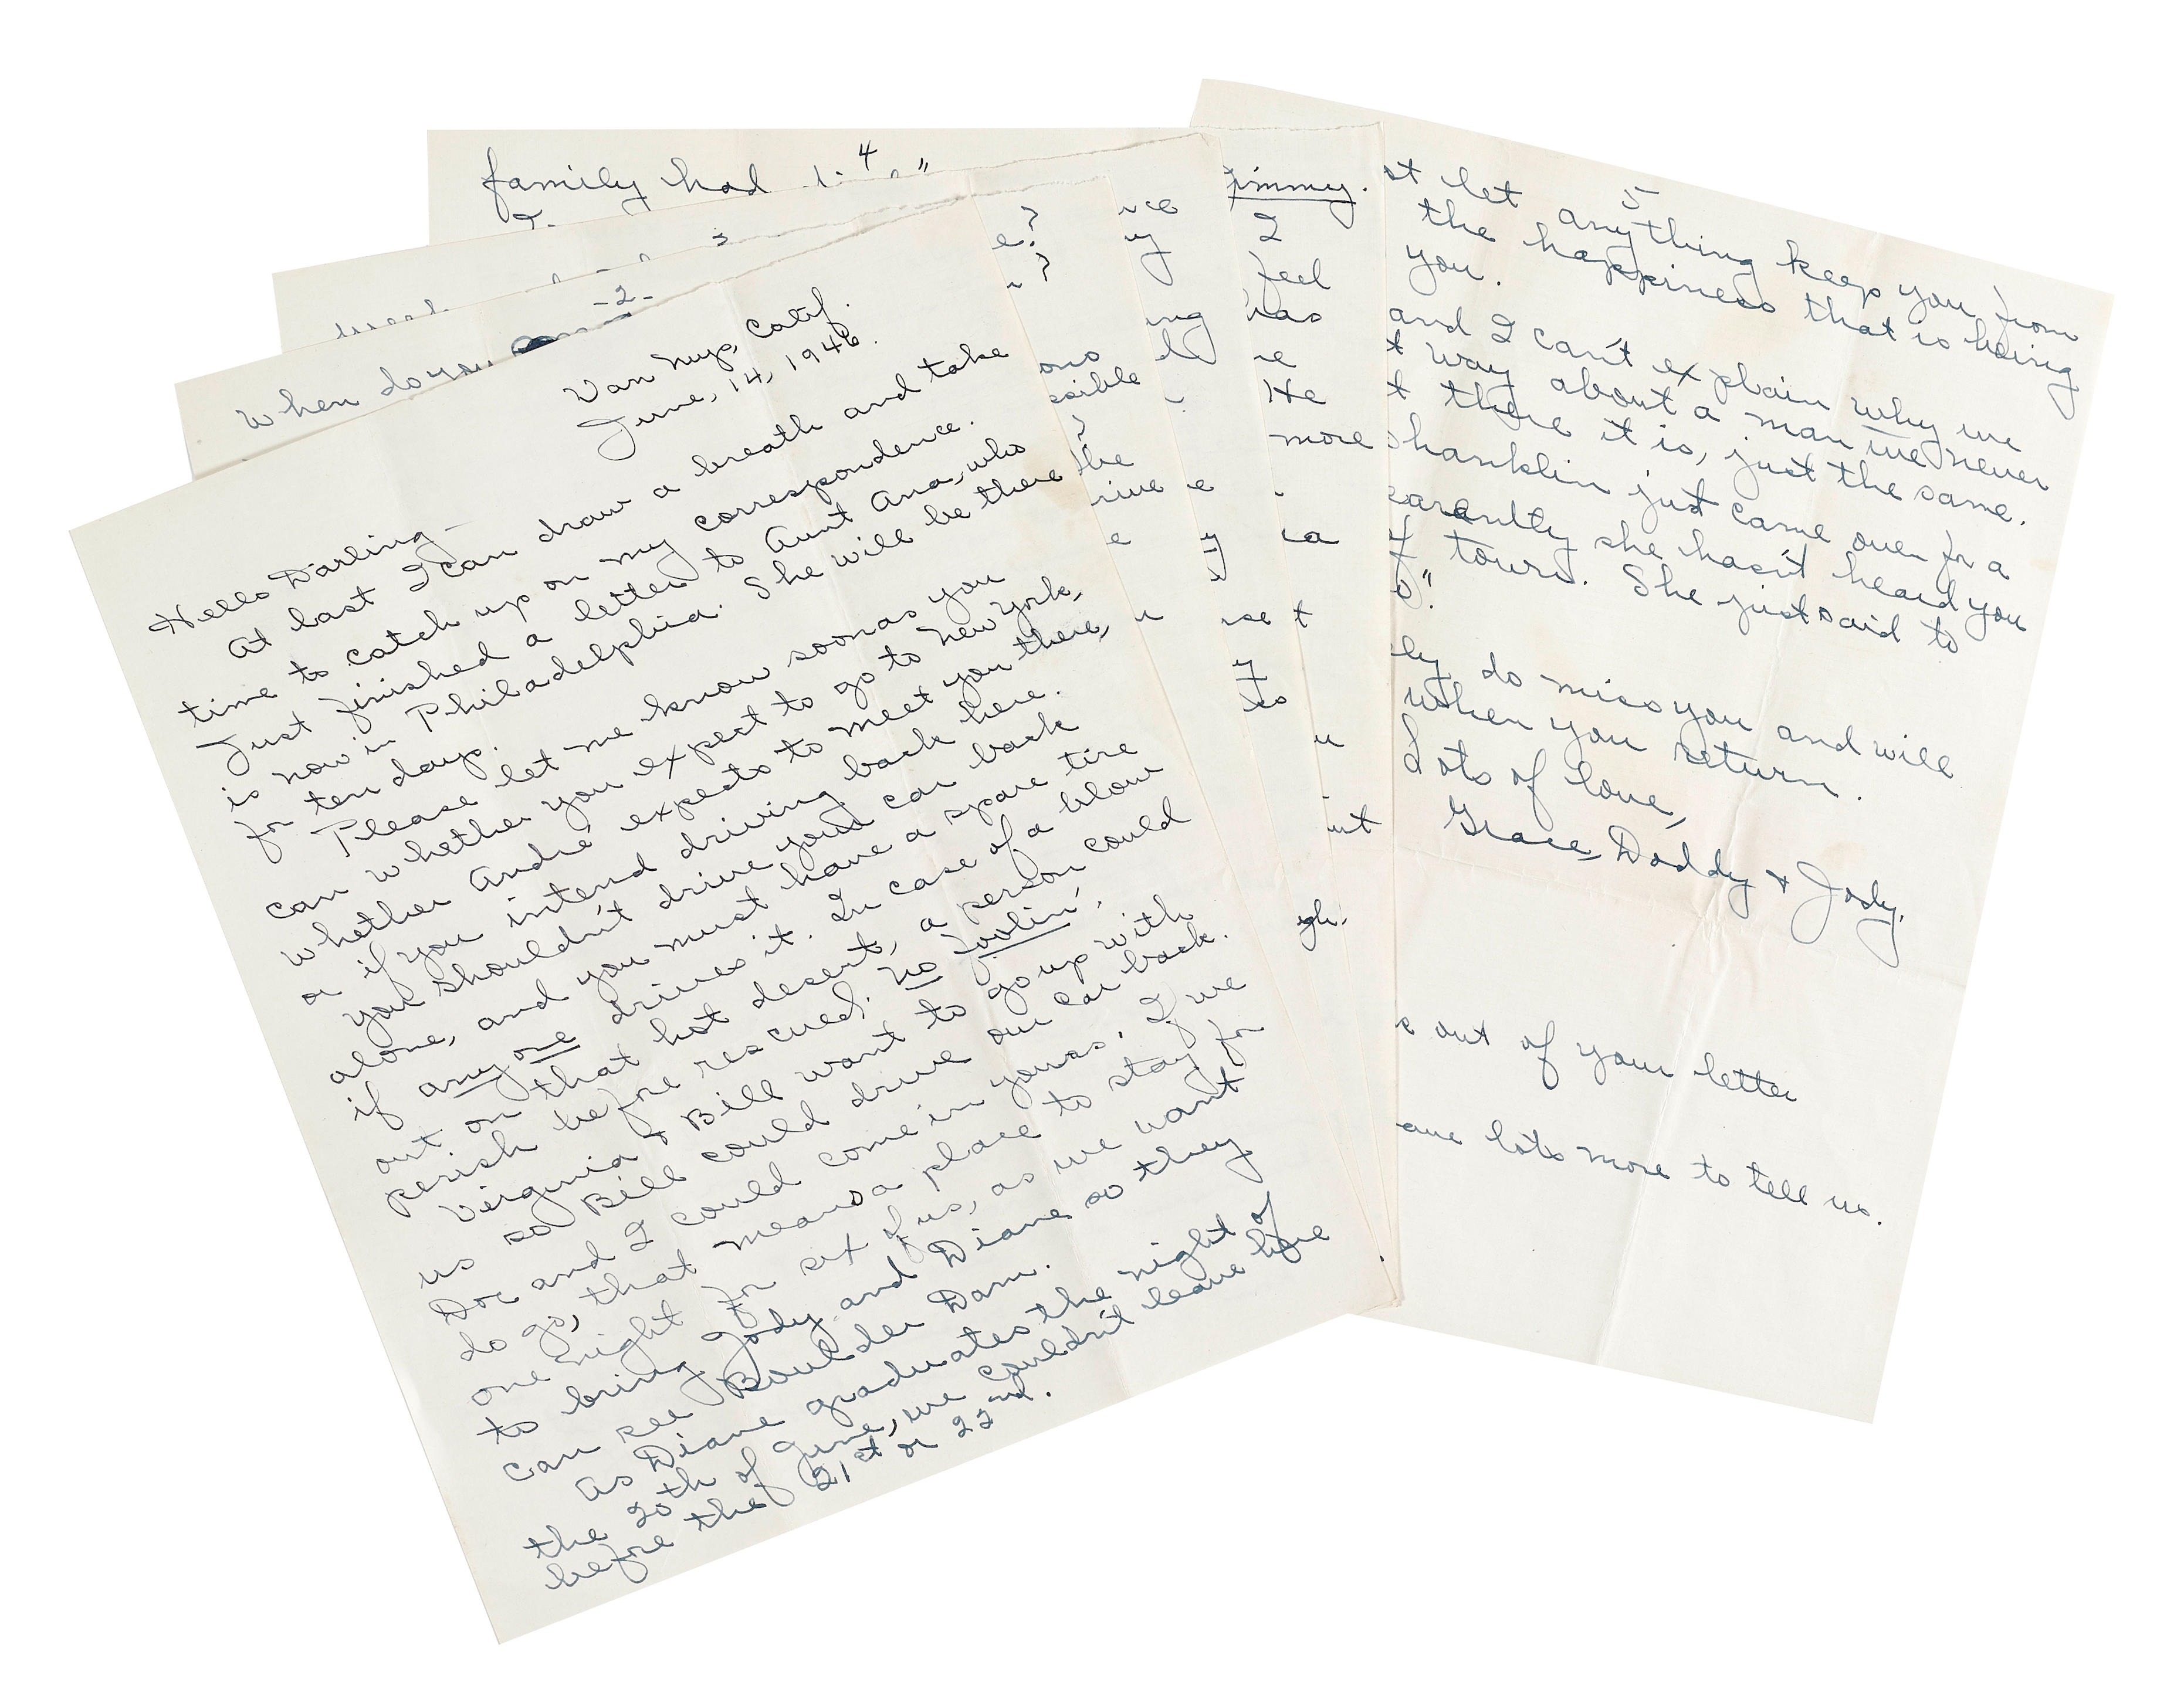 Van Nuys, Calif.
June, 14, 1946.
Hello Darling —
At last I can draw a breath and take
time to catch up on my correspondence.
Just finished a letter to Aunt Ana, who
is now in Philadelphia. She will be there
for ten days.
Please let me know soon as you
can whether you expect to go to New York,
whether André expects to meet you there,
or if you intend driving back here.
You shouldn't drive your car back
alone, and you must have a spare tire
if any one drives it. In case of a blow
out on that hot desert, a person could
perish before rescued. No foolin'.
Virginia & Bill want to go up with
us so Bill could drive our car back.
Doc and I could come in yours. If we
do go, that means a place to stay for
one night for six of us, as we want
to bring Jody and Diane so they
can see Boulder Dam.
As Diane graduates the night of
the 20th of June, we couldn't leave here
before the 21st or 22nd.
-2-
When do you
e?
3
4
family had
I
immy.
I
feel
has
He
more
5
st let anything keep you from
the happiness that is being
you.
and I can't explain why we
t way about a man we never
t there it is, just the same.
hanklin just came over for a
arently she hasn't heard you
f town. She just said to
o".
ely do miss you and will
when you return.
Lots of love,
Grace, Daddy & Jody.
e out of your letter
ave lots more to tell us.